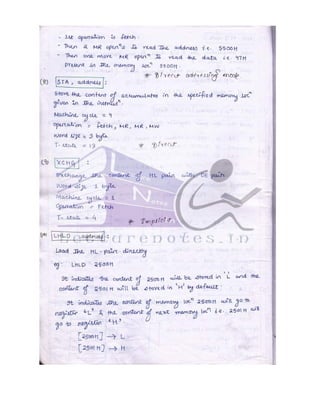 - 1st operation is fetch.
- Then a MR open" to read the address i.e. 5500H
- Then one more MR open" to read the data i.e. 97H
present in the memory loc" 5500H.
* Direct addressing mode
(8) STA, address :
Store the content of accumulator in the specified memory loc"
given in the instruc".
Machine cycle = 4
operation = fetch, MR, MR, MW
word size = 3 byte
T-state = 13 * Direct.
(9) XCHG :
Exchange the content of HL pair with DE pair
Word size 1 byte
Machine cycle = 1
Operation = Fetch
T-state = 4 * Implicit.
LHLD address :
Lecturenotes.in
Load the HL-pair directly
eg: LHLD 2500H
It indicates the content of 2500H will be stored in 'L' and the
content of 2501H will be stored in 'H' by default
It indicates the content of memory loc" 2500H will go to
register 'L' & the content of next memory loc" i.e. 2501H will
go to register 'H'
[2500H] → L
[2501H] → H